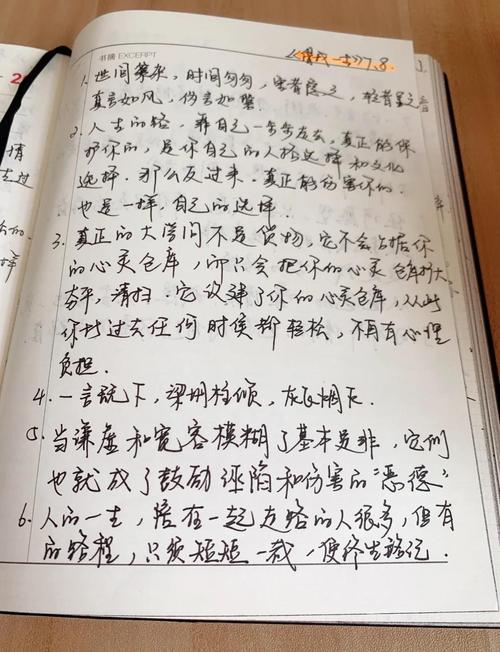 书摘 EXCERPT
《借我一生》7.8.
1. 世间繁杂，时间匆匆，
真言如风，伪言如磐
2. 人生的路，靠自己一步步去走，真正能保
护你的，是你自己的人格选择和文化
选择。那么反过来，真正能伤害你的
也是一样，自己的选择。
3. 真正的大学问不是货物，它不会占据你
的心灵仓库，而只会把你的心灵仓库扩大
夯平，清扫。它改建了你的心灵仓库，从此
你比过去任何时候都轻松，不再有心理
负担。
4. 一言既下，梁坍柱倾，灰飞烟灭。
5. 当谦虚和宽容模糊了基本是非，它们
也就成了鼓励诬陷和伤害的"恶德"
6. 人的一生，陪在一起走路的人很多，但有
的路程，只须短短一截，便终生铭记。
2
情
去过
的.
择